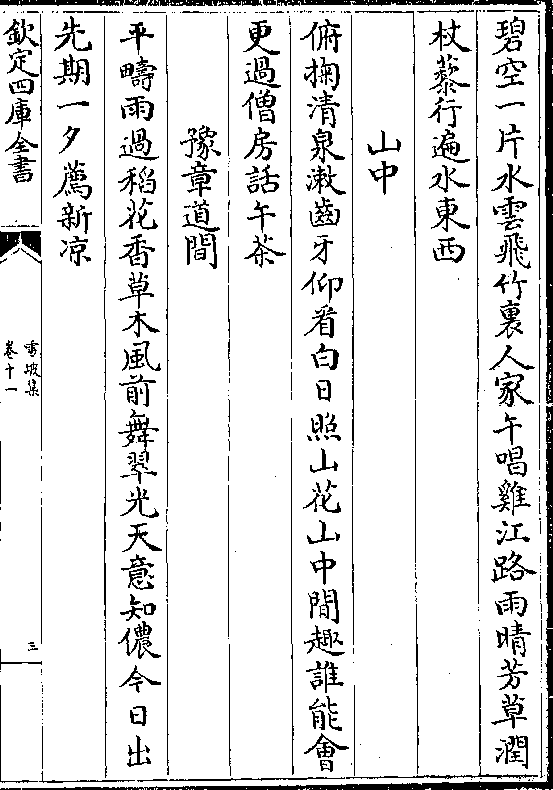 碧空一片水雲飛竹裏人家午唱雞江路雨晴芳草潤
杖藜行遍水東西
山中
俯掬清泉漱齒牙仰看白日照山花山中間趣誰能會
更過僧房話午茶
豫章道間
平疇雨過稻花香草木風前舞翠光天意知儂今日出
先期一夕薦新凉
欽定四庫全書
雪坡集
卷十一
三